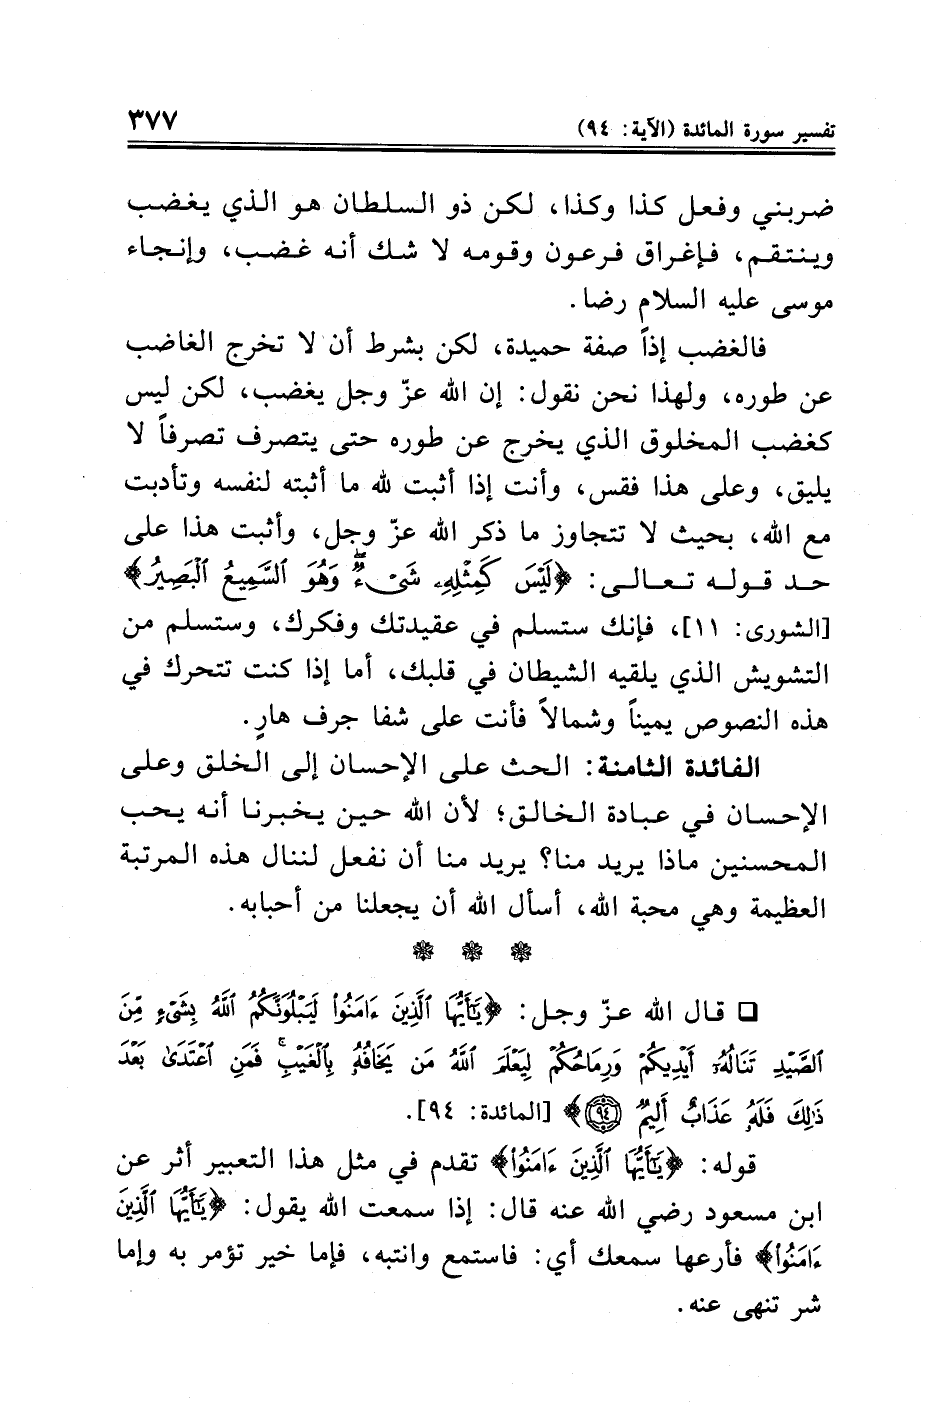 تفسير سورة المائدة (الآية: ٩٤)
٣٧٧
ضربني وفعل كذا وكذا، لكن ذو السلطان هو الذي يغضب
وينتقم، فإغراق فرعون وقومه لا شك أنه غضب، وإنجاء
موسى عليه السلام رضا.
فالغضب إذاً صفة حميدة، لكن بشرط أن لا تخرج الغاضب
عن طوره، ولهذا نحن نقول: إن الله عزّ وجل يغضب، لكن ليس
كغضب المخلوق الذي يخرج عن طوره حتى يتصرف تصرفاً لا
يليق، وعلى هذا فقس، وأنت إذا أثبت لله ما أثبته لنفسه وتأدبت
مع الله، بحيث لا تتجاوز ما ذكر الله عزّ وجل، وأثبت هذا على
حد قوله تعالى: ﴿لَيْسَ كَمِثْلِهِۦ شَىْءٌ ۖ وَهُوَ ٱلسَّمِيعُ ٱلْبَصِيرُ﴾
[الشورى: ١١]، فإنك ستسلم في عقيدتك وفكرك، وستسلم من
التشويش الذي يلقيه الشيطان في قلبك، أما إذا كنت تتحرك في
هذه النصوص يميناً وشمالاً فأنت على شفا جرف هارٍ.
الفائدة الثامنة: الحث على الإحسان إلى الخلق وعلى
الإحسان في عبادة الخالق؛ لأن الله حين يخبرنا أنه يحب
المحسنين ماذا يريد منا؟ يريد منا أن نفعل لننال هذه المرتبة
العظيمة وهي محبة الله، أسأل الله أن يجعلنا من أحبابه.
❁ ❁ ❁
❑ قال الله عزّ وجل: ﴿يَٰٓأَيُّهَا ٱلَّذِينَ ءَامَنُوا۟ لَيَبْلُوَنَّكُمُ ٱللَّهُ بِشَىْءٍ مِّنَ
ٱلصَّيْدِ تَنَالُهُۥٓ أَيْدِيكُمْ وَرِمَاحُكُمْ لِيَعْلَمَ ٱللَّهُ مَن يَخَافُهُۥ بِٱلْغَيْبِ ۚ فَمَنِ ٱعْتَدَىٰ بَعْدَ
ذَٰلِكَ فَلَهُۥ عَذَابٌ أَلِيمٌ ۝٩٤﴾ [المائدة: ٩٤].
قوله: ﴿يَٰٓأَيُّهَا ٱلَّذِينَ ءَامَنُوا۟﴾ تقدم في مثل هذا التعبير أثر عن
ابن مسعود رضي الله عنه قال: إذا سمعت الله يقول: ﴿يَٰٓأَيُّهَا ٱلَّذِينَ
ءَامَنُوا۟﴾ فأرعها سمعك أي: فاستمع وانتبه، فإما خير تؤمر به وإما
شر تنهى عنه.